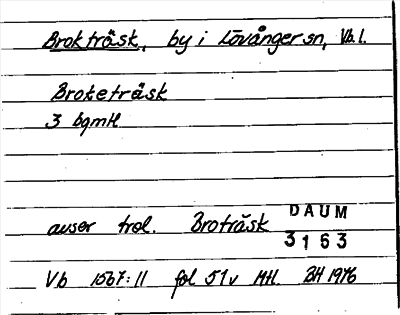 Brokträsk, by i Lövånger sn, Vb.l.
Broketräsk
3 bgmtl
avser trol. Broträsk
DAUM
3163
Vb 1567:11 fol 51v Mtl. BH 1976